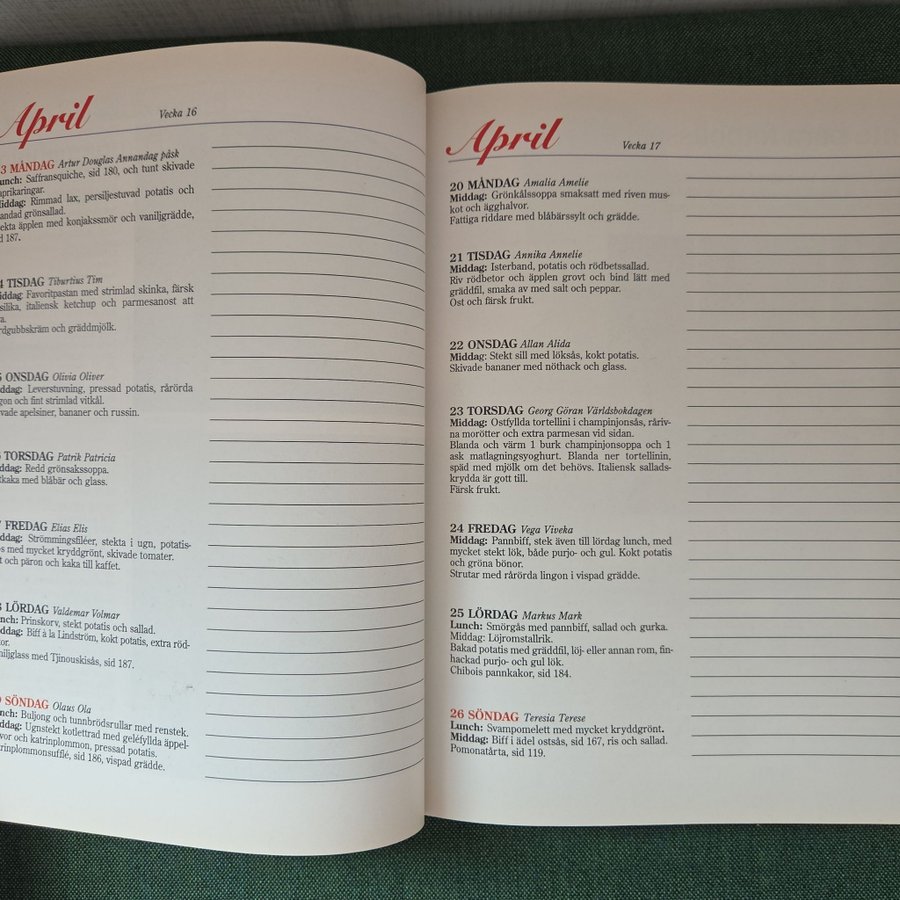 April
Vecka 16
3 MÅNDAG Artur Douglas Annandag påsk
unch: Saffransquiche, sid 180, och tunt skivade
aprikaringar.
iddag: Rimmad lax, persiljestuvad potatis och
andad grönsallad.
ekta äpplen med konjakssmör och vaniljgrädde,
d 187.
4 TISDAG Tiburtius Tim
iddag: Favoritpastan med strimlad skinka, färsk
silika, italiensk ketchup och parmesanost att
a.
rdgubbskräm och gräddmjölk.
ONSDAG Olivia Oliver
ddag: Leverstuvning, pressad potatis, rårörda
gon och fint strimlad vitkål.
vade apelsiner, bananer och russin.
TORSDAG Patrik Patricia
ddag: Redd grönsakssoppa.
tkaka med blåbär och glass.
FREDAG Elias Elis
ddag: Strömmingsfiléer, stekta i ugn, potatis-
s med mycket kryddgrönt, skivade tomater.
t och päron och kaka till kaffet.
LÖRDAG Valdemar Volmar
nch: Prinskorv, stekt potatis och sallad.
ddag: Biff à la Lindström, kokt potatis, extra röd-
or.
niljglass med Tjinouskisås, sid 187.
SÖNDAG Olaus Ola
nch: Buljong och tunnbrödsrullar med renstek.
ddag: Ugnstekt kotlettrad med geléfyllda äppel-
vor och katrinplommon, pressad potatis.
trinplommonsufflé, sid 186, vispad grädde.
April
Vecka 17
20 MÅNDAG Amalia Amelie
Middag: Grönkålssoppa smaksatt med riven mus-
kot och ägghalvor.
Fattiga riddare med blåbärssylt och grädde.
21 TISDAG Annika Annelie
Middag: Isterband, potatis och rödbetssallad.
Riv rödbetor och äpplen grovt och bind lätt med
gräddfil, smaka av med salt och peppar.
Ost och färsk frukt.
22 ONSDAG Allan Alida
Middag: Stekt sill med löksås, kokt potatis.
Skivade bananer med nöthack och glass.
23 TORSDAG Georg Göran Världsbokdagen
Middag: Ostfyllda tortellini i champinjonsås, råriv-
na morötter och extra parmesan vid sidan.
Blanda och värm 1 burk champinjonsoppa och 1
ask matlagningsyoghurt. Blanda ner tortellinin,
späd med mjölk om det behövs. Italiensk sallads-
krydda är gott till.
Färsk frukt.
24 FREDAG Vega Viveka
Middag: Pannbiff, stek även till lördag lunch, med
mycket stekt lök, både purjo- och gul. Kokt potatis
och gröna bönor.
Strutar med rårörda lingon i vispad grädde.
25 LÖRDAG Markus Mark
Lunch: Smörgås med pannbiff, sallad och gurka.
Middag: Löjromstallrik.
Bakad potatis med gräddfil, löj- eller annan rom, fin-
hackad purjo- och gul lök.
Chibois pannkakor, sid 184.
26 SÖNDAG Teresia Terese
Lunch: Svampomelett med mycket kryddgrönt.
Middag: Biff i ädel ostsås, sid 167, ris och sallad.
Pomonatårta, sid 119.